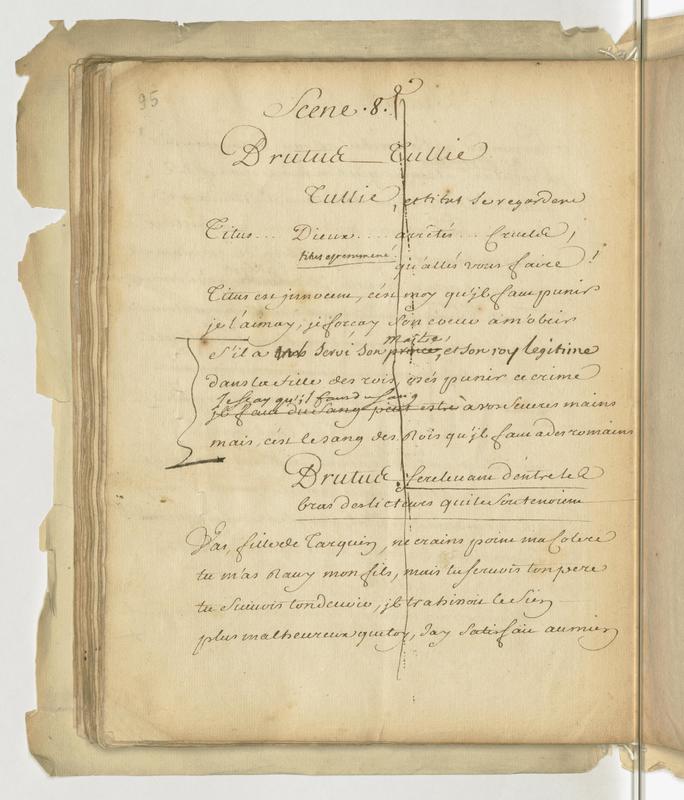 95
Scene .8.e
Brutus Tullie
Tullie, et titus se regardent
Titus... Dieux.... arrêtés... Cruels,
titus est emmené
qu'allés vous faire !
Titus est jnnocent, c'est moy qu'jl faut punir
je l'aimay, je forcay son coeur a m'obeir
s'il a servi son prince, et son roy legitime
maitre
dans la fille des rois, osés punir ce crime
Je scay qu'il faut du sang
jl faut du sang peut estre à vos severes mains
mais, c'est le sang des Rois qu'jl faut a des romains
Brutus, se relevant d'entre les
bras des licteurs qui le soutenoient
Vas, fille de Tarquin, ne crains point ma colere
tu m'as Ravy mon fils, mais tu servois ton pere
tu suivois ton devoir, jl trahissoit le sien
plus malheureux que toy, j'ay satisfait au mien